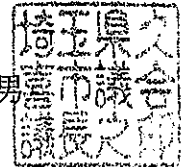 男
埼玉県久
喜市議会
議長之印